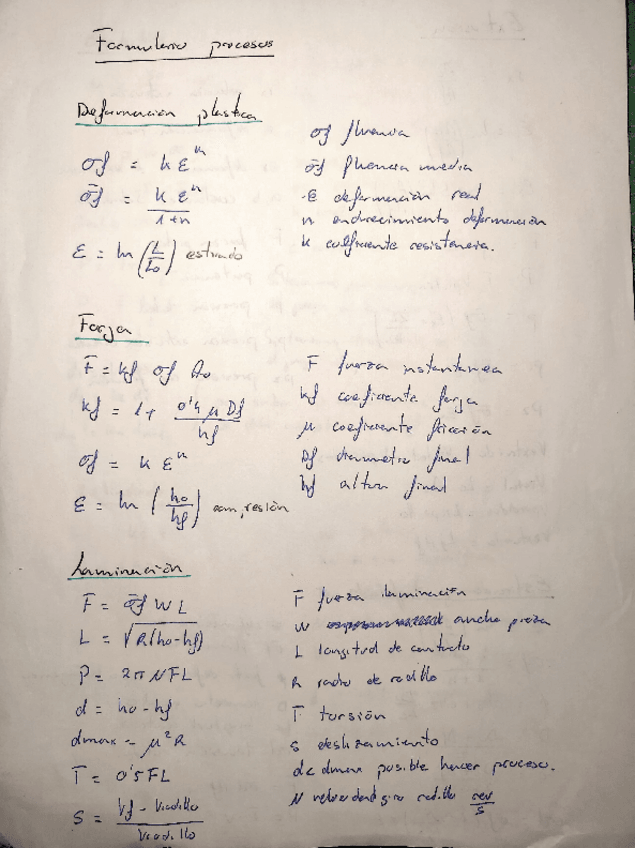 Formulario procesos
Deformación plástica
σf = K ε^n
σ̄f = K ε^n / 1+n
ε = ln (L/Lo) estirado
σf fluencia
σ̄f fluencia media
ε deformación real
n endurecimiento deformación
K coeficiente resistencia.
Forja
F = Kf σf Ao
Kf = 1 + 0'4 μ Df / hf
σf = K ε^n
ε = ln (ho/hf) compresión
F fuerza instantanea
Kf coeficiente forja
μ coeficiente fricción
Df diametro final
hf altura final
Laminación
F = σ̄f W L
L = √R(ho-hf)
P = 2π N F L
d = ho - hf
dmax = μ² R
T = 0'5 F L
S = Vf - Vrodillo / Vrodillo
F fuerza laminación
W ancho pieza
L longitud de contacto
R radio de rodillo
T torsión
S deslizamiento
d< dmax posible hacer proceso.
N velocidad giro rodillo rev/s